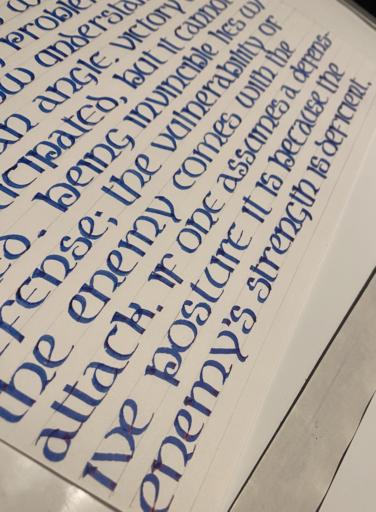 proble
ow understa
an angle. victory
icipated, but it canno
d. being invincible lies w
efense; the vulnerability of
the enemy comes with the
attack. if one assumes a defens-
ive posture it is because the
enemy's strength is deficient.